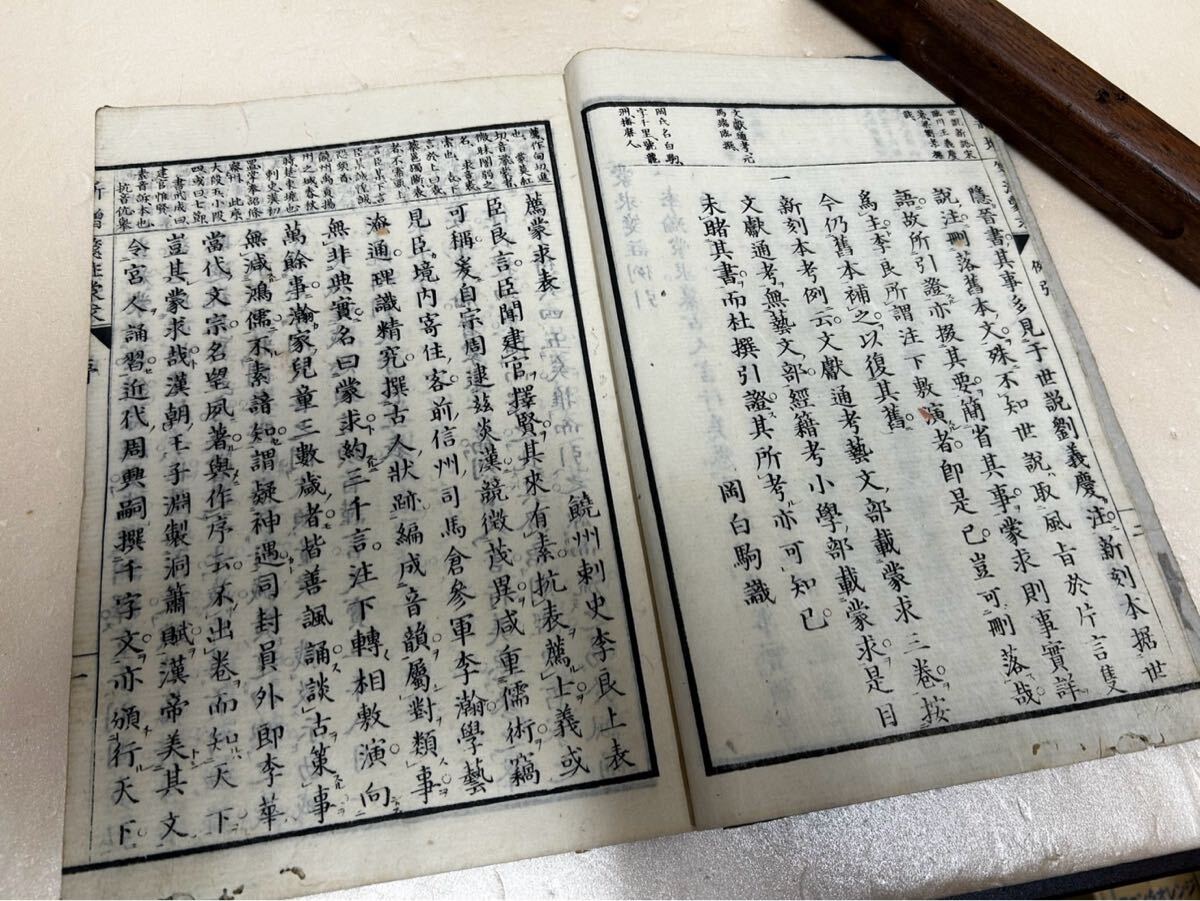 隱晉書其事多見于世說劉義慶注新刻本据世
說注刪落舊本文殊不知世說取風旨於片言隻
語故所引證亦掇其要簡省其事蒙求則事實詳
爲主李良所謂注下敷演者即是已豈可刪落哉
今仍舊本補之以復其舊
新刻本考例云文獻通考藝文部載蒙求三卷按
文獻通考無藝文部經籍考小學部載蒙求是目
未睹其書而杜撰引證其所考亦可知已
岡白駒識
文獻通考元
馬端臨撰
岡氏名白駒
字千里號龍
洲播磨人
一
例引
二
薦蒙求表
饒州刺史李良上表
臣良言臣聞建官擇賢其來有素抗表薦士義或
可稱爰自宗周逮玆炎漢競徵茂異咸重儒術竊
見臣境内寄住客前信州司馬倉參軍李瀚學藝
淹通理識精究撰古人狀跡編成音韻屬對類事
無非典實名曰蒙求約三千言注下轉相敷演向
萬餘事瀚家兒童三數歲者皆善諷誦談古策事
無減鴻儒不素諳知謂疑神遇司封員外郎李華
當代文宗名望夙著與作序云不出卷而知天下
豈其蒙求哉漢朝王子淵製洞簫賦漢帝美其文
令宮人誦習近代周興嗣撰千字文亦頒行天下
序
一